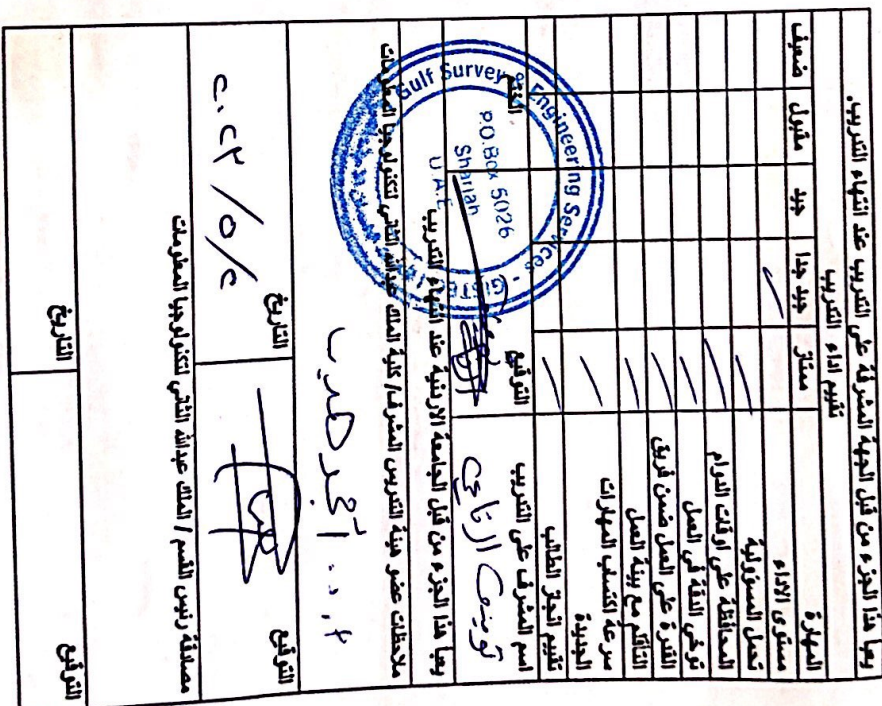 يعبأ هذا الجزء من قبل الجهة المشرفة على التدريب عند انتهاء التدريب.
تقييم اداء التدريب
المهارة ممتاز جيد جدا جيد مقبول ضعيف
مستوى الاداء
تحمل المسؤولية
المحافظة على اوقات الدوام
توخي الدقة في العمل
القدرة على العمل ضمن فريق
التأقلم مع بيئة العمل
سرعة اكتساب المهارات
الجديدة
تقييم انجاز الطالب
اسم المشرف على التدريب التوقيع الختم
Gulf Survey & Engineering Services - GISTEC
P.O.Box 5026
Sharjah
U.A.E
يعبأ هذا الجزء من قبل الجامعة الاردنية عند انتهاء التدريب
ملاحظات عضو هيئة التدريس المشرف/ كلية الملك عبدالله الثاني لتكنولوجيا المعلومات
التوقيع التاريخ
٢٠٢٣/٥/٢
مصادقة رئيس القسم / الملك عبدالله الثاني لتكنولوجيا المعلومات
التوقيع التاريخ